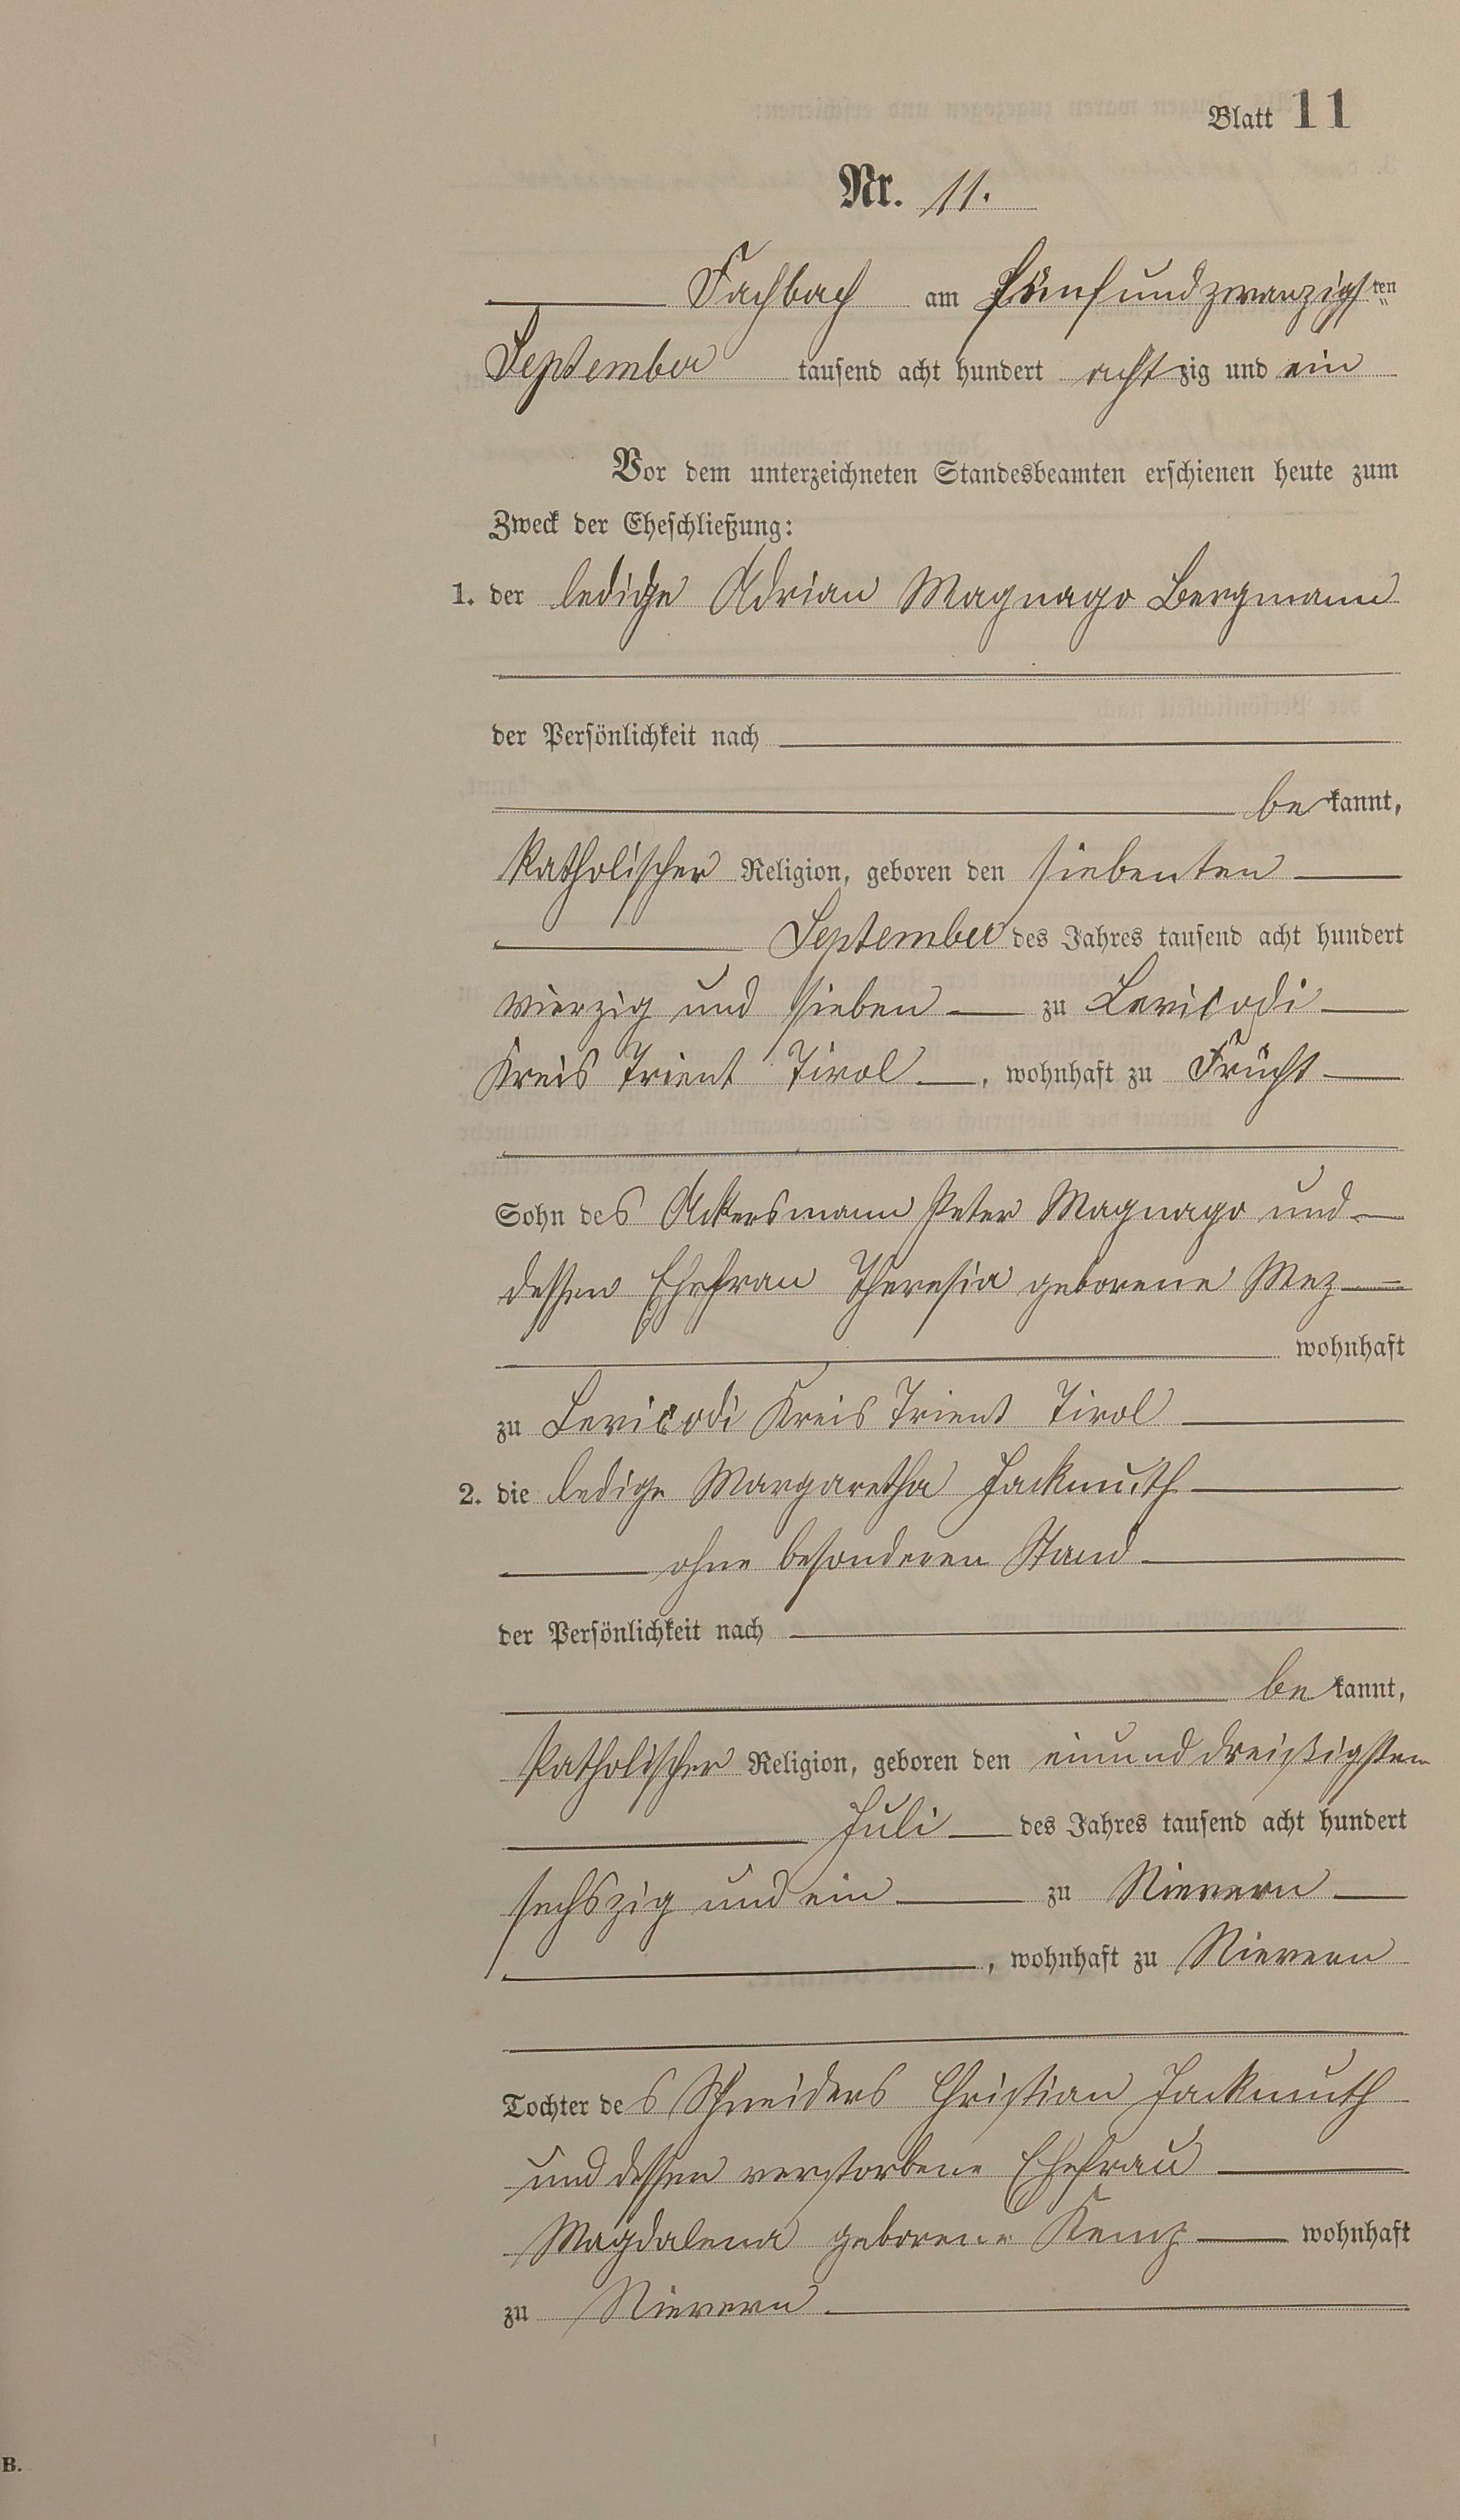 Blatt 11
Nr. 11.
Fachbach am fünfundzwanzigsten
September tausend acht hundert achtzig und ein
Vor dem unterzeichneten Standesbeamten erschienen heute zum
Zweck der Eheschließung:
1. der ledige Adrian Magnago Bergmann
der Persönlichkeit nach
be kannt,
katholischer Religion, geboren den siebenten
September des Jahres tausend acht hundert
vierzig und sieben zu Levicodi
Kreis Trient Tirol, wohnhaft zu Frücht
Sohn des Ackersmann Peter Magnago und
dessen Ehefrau Theresia geborene Mez
wohnhaft
zu Levicodi Kreis Trient Tirol
2. die ledige Margaretha Jackmuth
ohne besonderen Stand
der Persönlichkeit nach
be kannt,
katholischer Religion, geboren den einunddreißigsten
Juli des Jahres tausend acht hundert
sechszig und ein zu Nievern
, wohnhaft zu Nievern
Tochter des Schneiders Christian Jackmuth
und dessen verstorbene Ehefrau
Magdalena geborene wohnhaft
zu Nievern.
B.